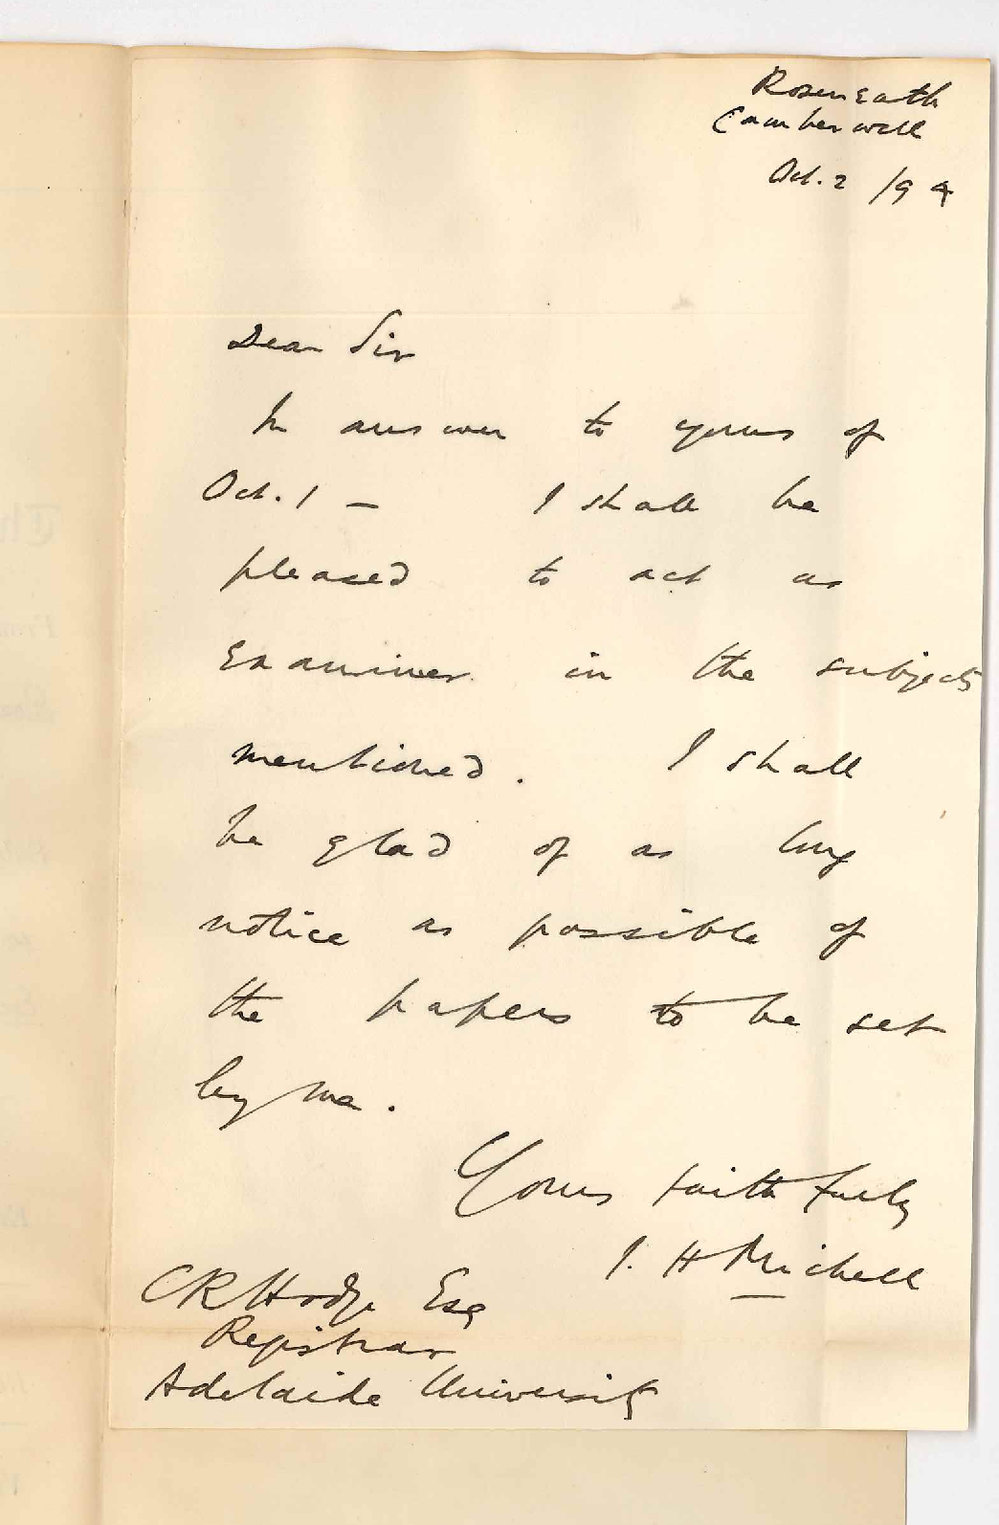 Roseneath
Camberwell
Oct. 2 /94
Dear Sir
In answer to yours of
Oct. 1 — I shall be
pleased to act as
Examiner in the subjects
mentioned. I shall
be glad of as long
notice as possible of
the papers to be set
by me.
Yours faithfully
J. H Michell
C R Hodge Esq
Registrar
Adelaide University